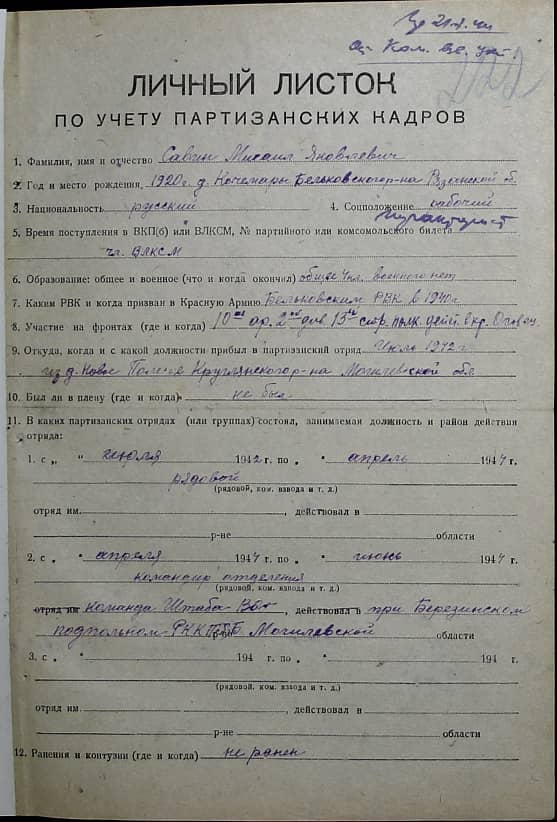 ЛИЧНЫЙ ЛИСТОК
ПО УЧЕТУ ПАРТИЗАНСКИХ КАДРОВ
1. Фамилия, имя и отчество Савин Михаил Яковлевич
2. Год и место рождения, 1920г. д. Кочемары Бельковского р-на Рязанской об.
3. Национальность русский 4. Соцположение рабочий
5. Время поступления в ВКП(б) или ВЛКСМ, № партийного или комсомольского билета
чл. ВЛКСМ
6. Образование: общее и военное (что и когда окончил) общее 4кл. военного нет
7. Каким РВК и когда призван в Красную Армию Бельковским РВК в 1940г.
8. Участие на фронтах (где и когда) 10ая ар. 2ая див. 13ый полк. дейст. в кр.
9. Откуда, когда и с какой должности прибыл в партизанский отряд Июль 1942 г.
из д. Новое Полесье Круглянского р-на Могилевской обл.
10. Был ли в плену (где и когда) не был
11. В каких партизанских отрядах (или группах) состоял, занимаемая должность и район действия
отряда:
1. с „ „ июля 1942 г. по „ апрель 1944 г.
рядовой
(рядовой, ком. взвода и т. д.)
отряд им. , действовал в
р-не области
2. с „ апреля 1944 г. по „ июнь 1944 г.
командир отделения
(рядовой, ком. взвода и т. д.)
отряд им команда Штаба ВОГ , действовал в при Березинском
подпольном РК КП(б)Б Могилевской области
3. с „ 194 г. по „ 194 г.
(рядовой, ком. взвода и т. д.)
отряд им. , действовал в
р-не области
12. Ранения и контузии (где и когда) не ранен